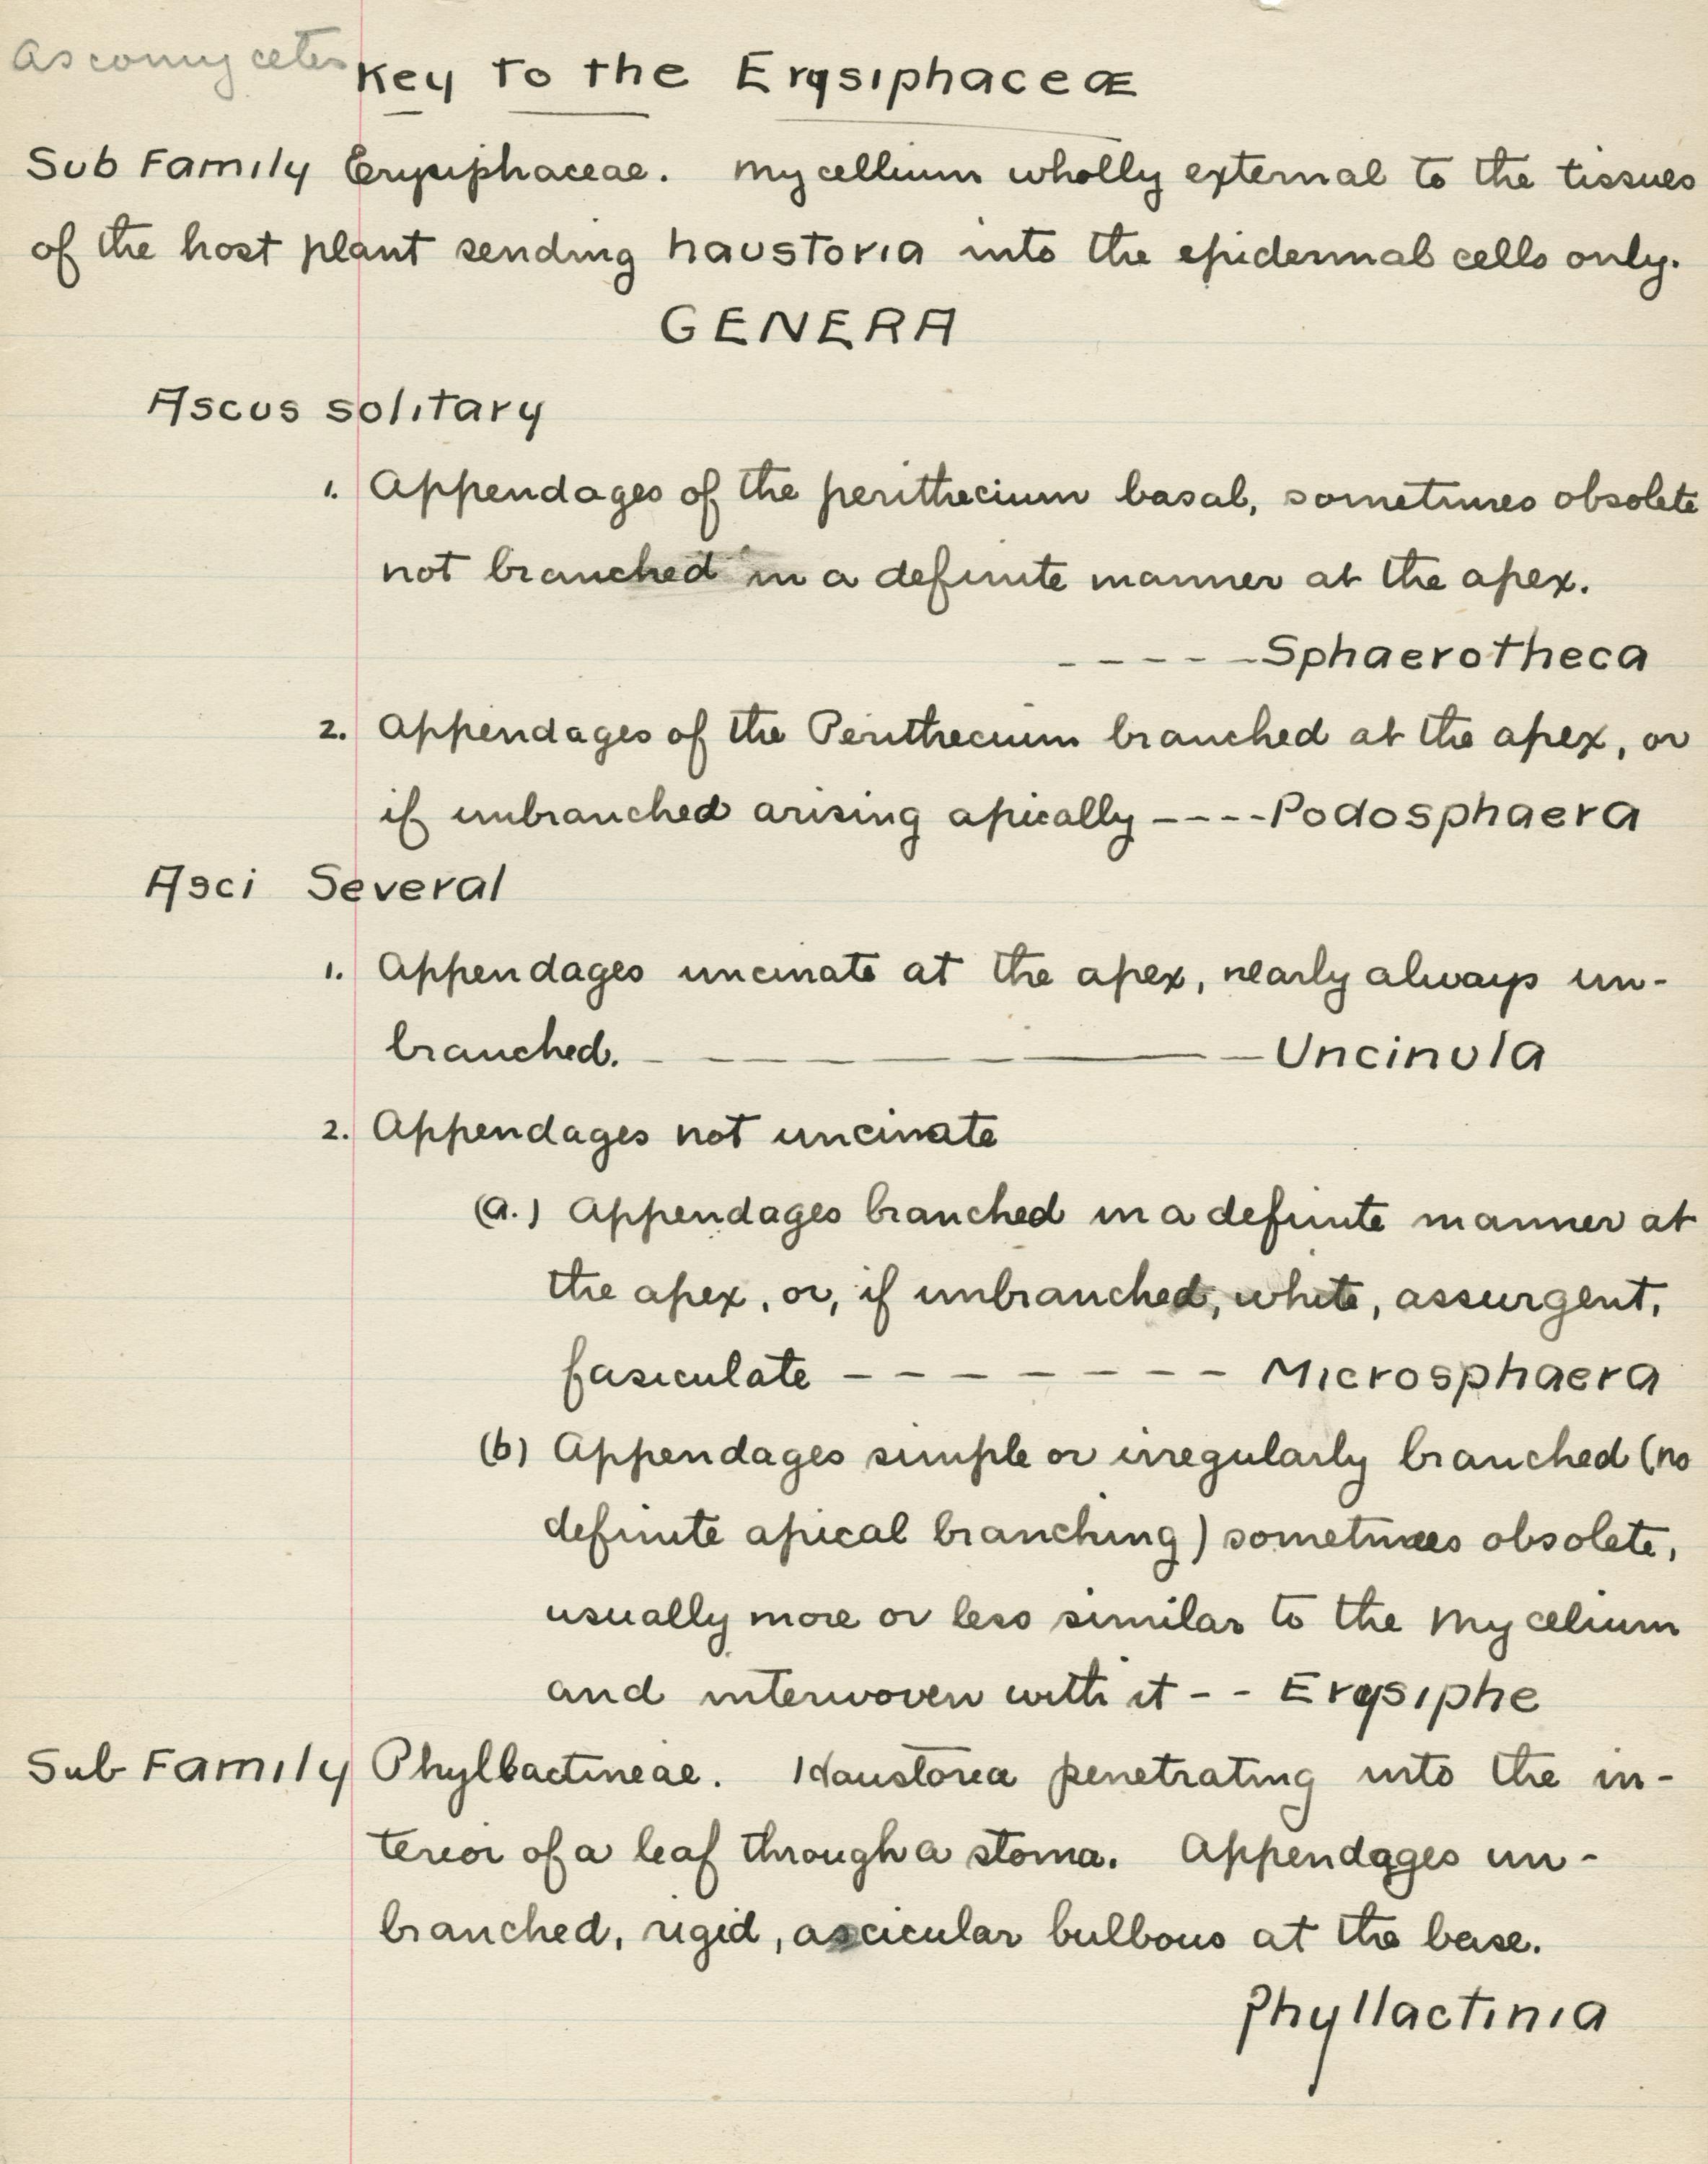 Ascomycetes
Key to the Erysiphaceæ
Sub Family Erysiphaceae. Mycellium wholly external to the tissues
of the host plant sending haustoria into the epidermal cells only.
GENERA
Ascus solitary
1. Appendages of the perithecium basal, sometimes obsolete
not branched in a definite manner at the apex.
-----Sphaerotheca
2. Appendages of the Perithecium branched at the apex, or
if unbranched arising apically ----Podosphaera
Asci Several
1. Appendages uncinate at the apex, nearly always un-
branched. - - - - - - - Uncinula
2. Appendages not uncinate
(a.) Appendages branched in a definite manner at
the apex, or, if unbranched, white, assurgent,
fasiculate - - - - - - - Microsphaera
(b) Appendages simple or irregularly branched (no
definite apical branching) sometimes obsolete,
usually more or less similar to the Mycelium
and interwoven with it - - Erysiphe
Sub Family Phyllactineae. Haustoria penetrating into the in-
terior of a leaf through a stoma. Appendages un-
branched, rigid, ascicular bulbous at the base.
Phyllactinia